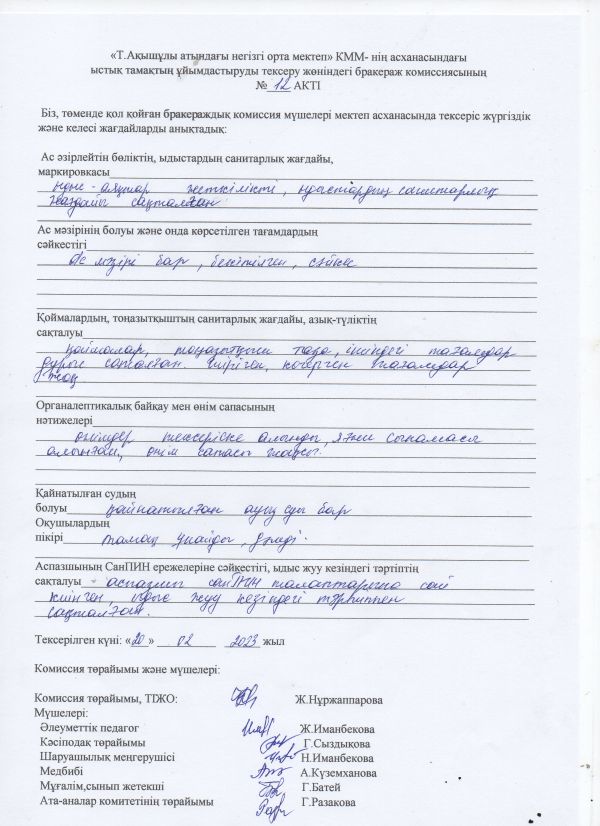 «Т.Ақышұлы атындағы негізгі орта мектеп» КММ- нің асханасындағы
ыстық тамақтың ұйымдастыруды тексеру жөніндегі бракераж комиссиясының
№ 12 АКТІ
Біз, төменде қол қойған бракераждық комиссия мүшелері мектеп асханасында тексеріс жүргіздік
және келесі жағдайларды анықтадық:
Ас әзірлейтін бөліктің, ыдыстардың санитарлық жағдайы,
маркировкасы
ыдыс-аяқтар жеткілікті, ыдыстардың санитарлық
жағдайы сақталған
Ас мәзірінің болуы және онда көрсетілген тағамдардың
сәйкестігі
Ас мәзірі бар, бекітілген, сәйкес
Қоймалардың, тоңазытқыштың санитарлық жағдайы, азық-түліктің
сақталуы
қоймалар, тоңазытқыш таза, ішіндегі тағамдар
дұрыс сақталған. Шіріген, көгерген тағамдар
жоқ
Органалептикалық байқау мен өнім сапасының
нәтижелері
өнімдер тексеріске алынды, яғни сынамасы
алынған, өнім сапасы жақсы.
Қайнатылған судың
болуы қайнатылған ауыз су бар
Оқушылардың
пікірі тамақ ұнайды, дәмді.
Аспазшының СанПИН ережелеріне сәйкестігі, ыдыс жуу кезіндегі тәртіптің
сақталуы - аспазшы санПИН талаптарына сай
киінген, ыдыс жуу кезіндегі тәртіппен
сақталған.
Тексерілген күні: «20» 02 2023 жыл
Комиссия төрайымы және мүшелері:
Комиссия төрайымы, ТІЖО: Ж.Нұржаппарова
Мүшелері:
Әлеуметтік педагог Ж.Иманбекова
Кәсіподақ төрайымы Г.Сыздықова
Шаруашылық меңгерушісі Н.Иманбекова
Медбибі А.Күземханова
Мұғалім,сынып жетекші Г.Батей
Ата-аналар комитетінің төрайымы Г.Разакова